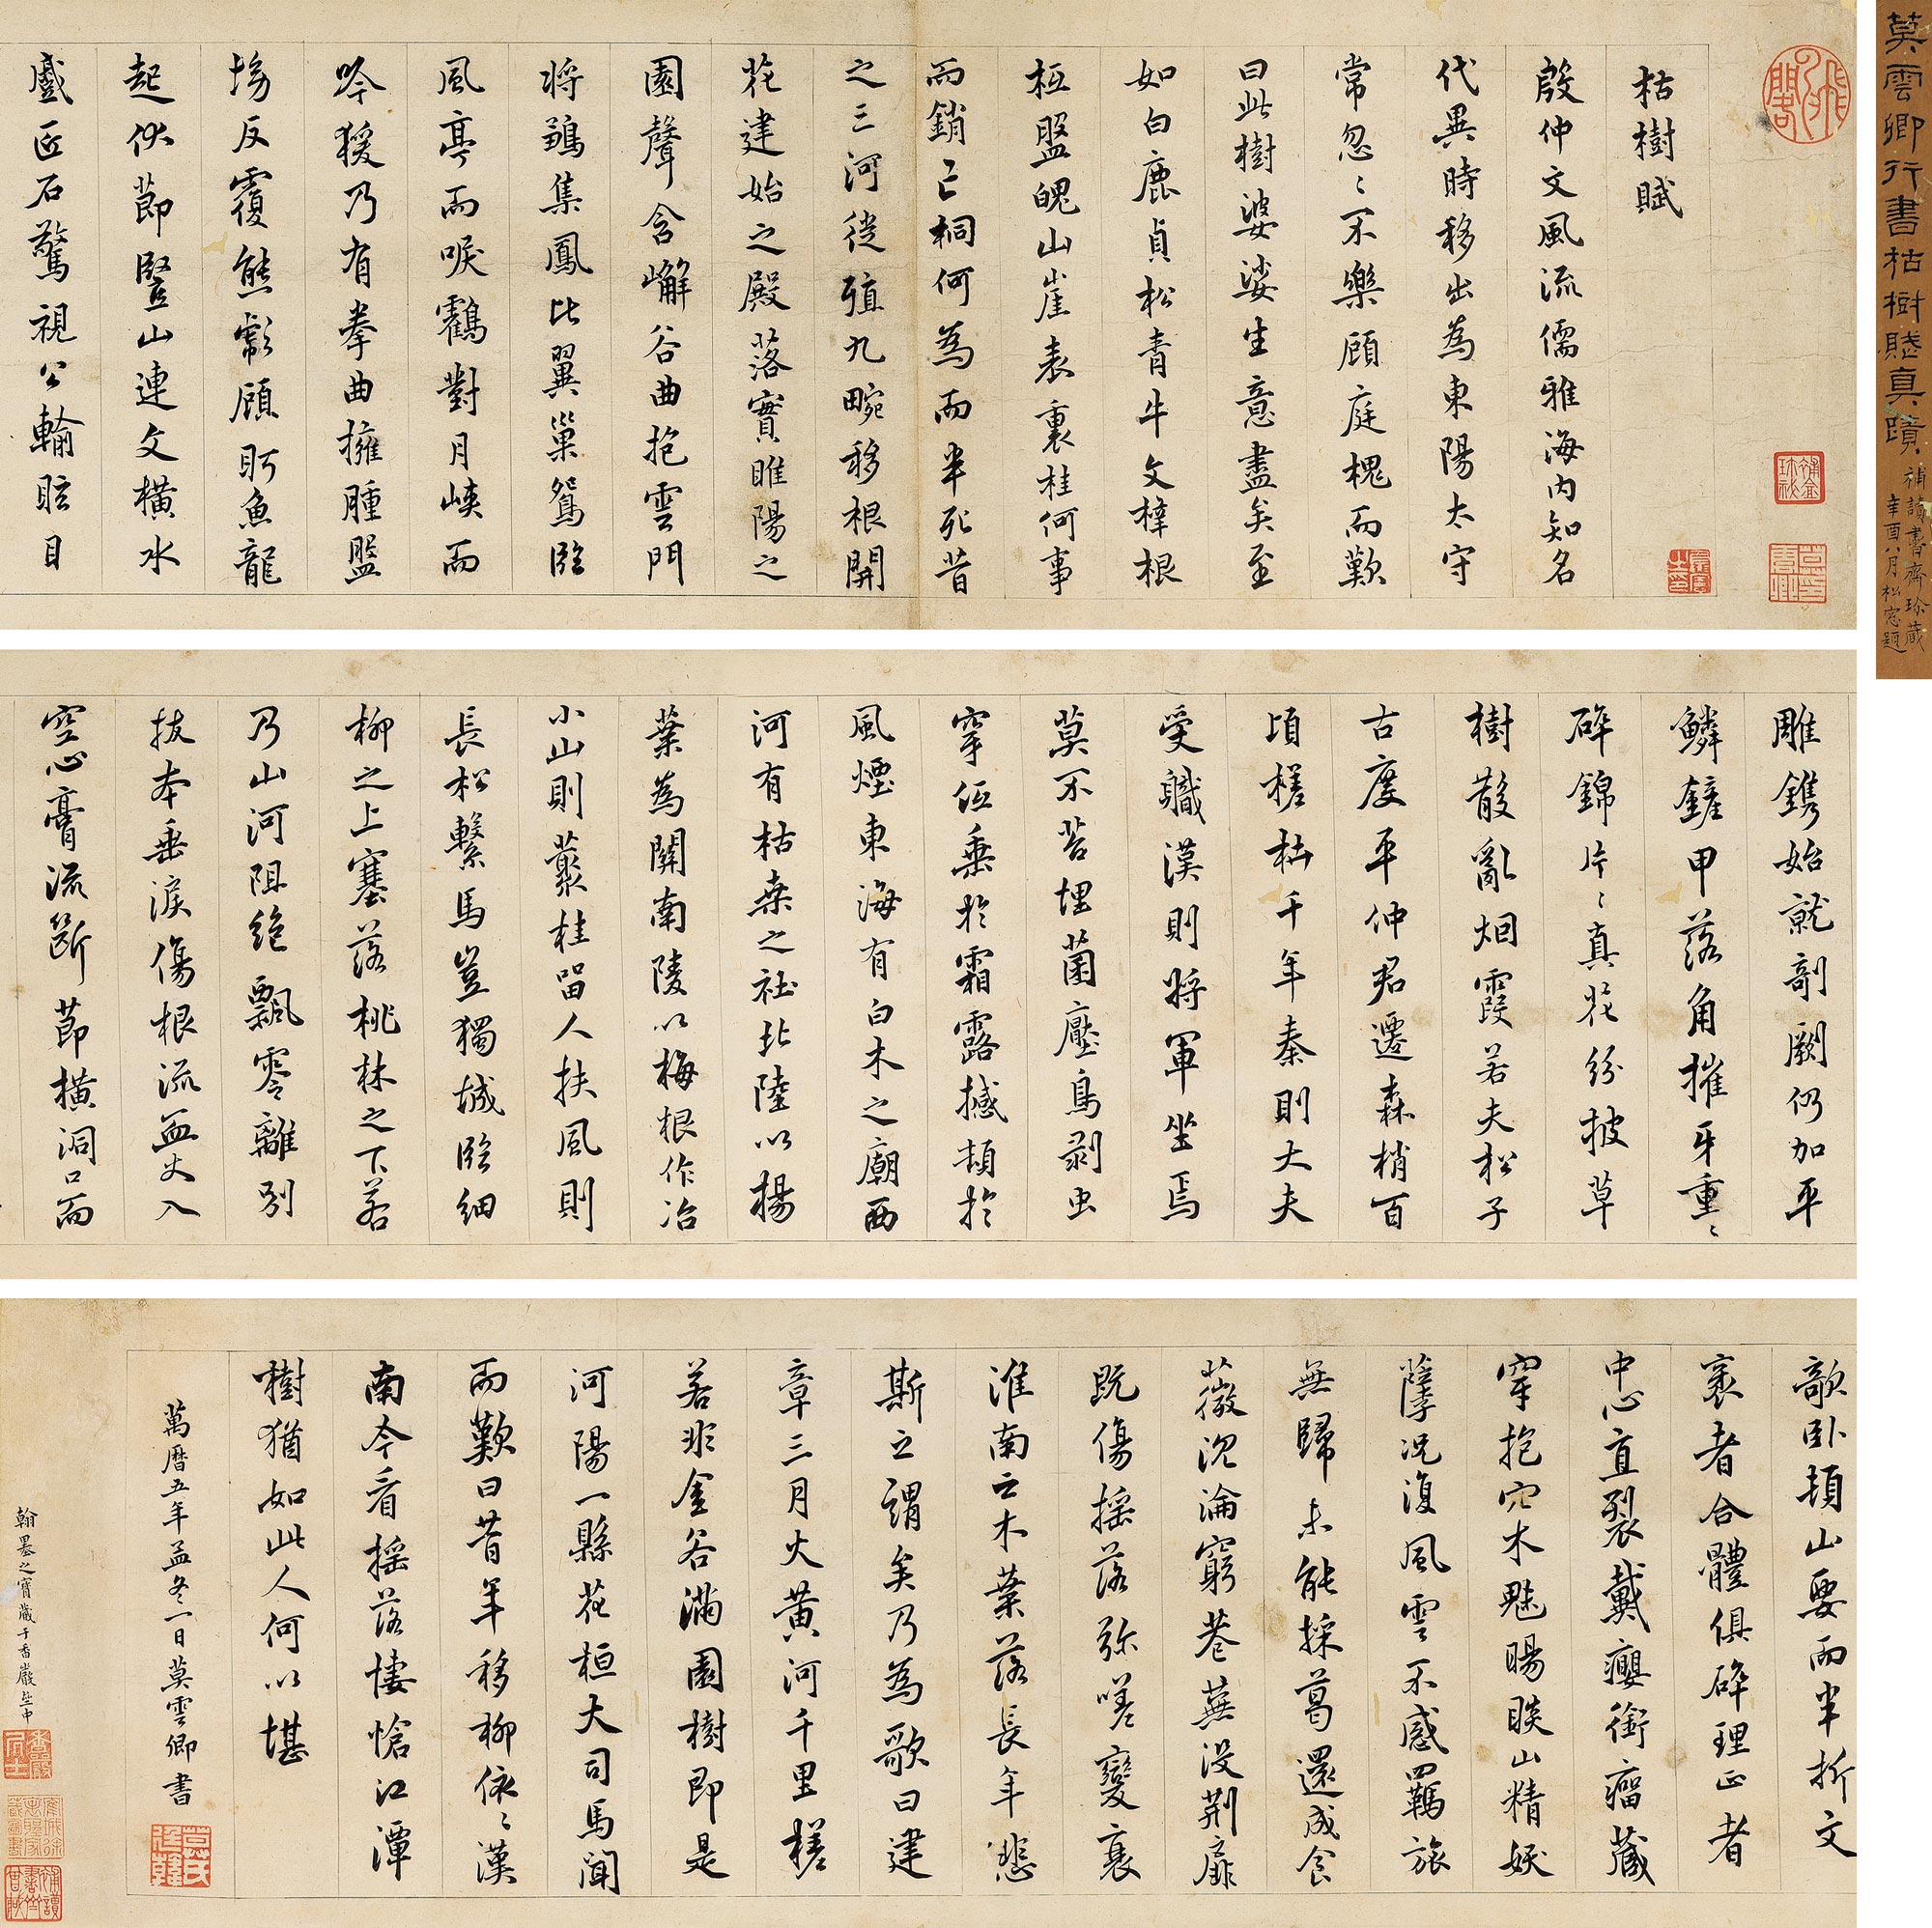 莫雲卿行書枯樹賦真蹟
補讀書齋珍藏
辛酉八月松窓題
枯樹賦
殷仲文風流儒雅海內知名
代異時移出為東陽太守
常忽〻不樂顧庭槐而歎
曰此樹婆娑生意盡矣至
如白鹿貞松青牛文梓根
柢盤魄山崖表裏桂何事
而銷亡桐何為而半死昔
之三河徙殖九畹移根開
花建始之殿落實睢陽之
園聲含嶰谷曲抱雲門
將鶵集鳳比翼巢鴛臨
風亭而唳鶴對月峽而
吟猨乃有拳曲擁腫盤
坳反覆熊彪顧盼魚龍
起伏節豎山連文橫水
蹙匠石驚視公輸眩目
雕鐫始就剞劂仍加平
鱗鏟甲落角摧牙重〻
碎錦片〻真花紛披草
樹散亂烟霞若夫松子
古度平仲君遷森梢百
頃槎枿千年秦則大夫
受職漢則將軍坐焉
莫不苔埋菌壓鳥剥虫
穿低垂於霜露撼頓於
風煙東海有白木之廟西
河有枯桑之社北陸以楊
葉為關南陵以梅根作冶
小山則叢桂留人扶風則
長松繫馬豈獨城臨細
柳之上塞落桃林之下若
乃山河阻絕飄零離別
拔本垂淚傷根流血火入
空心膏流斷節橫洞口而
欹卧頓山要而半折文
衺者合體俱碎理正者
中心直裂戴癭銜瘤藏
穿抱穴木魅晹睒山精妖
孽況復風雲不感羈旅
無歸未能採葛還成食
薇沉淪窮巷蕪沒荆扉
既傷搖落弥嗟變衰
淮南云木葉落長年悲
斯之謂矣乃為歌曰建
章三月火黃河千里槎
若非金谷滿園樹即是
河陽一縣花桓大司馬聞
而歎曰昔年移柳依〻漢
南今看搖落悽愴江潭
樹猶如此人何以堪
萬曆五年孟冬一日莫雲卿書
翰墨之寶藏于香嚴坐中